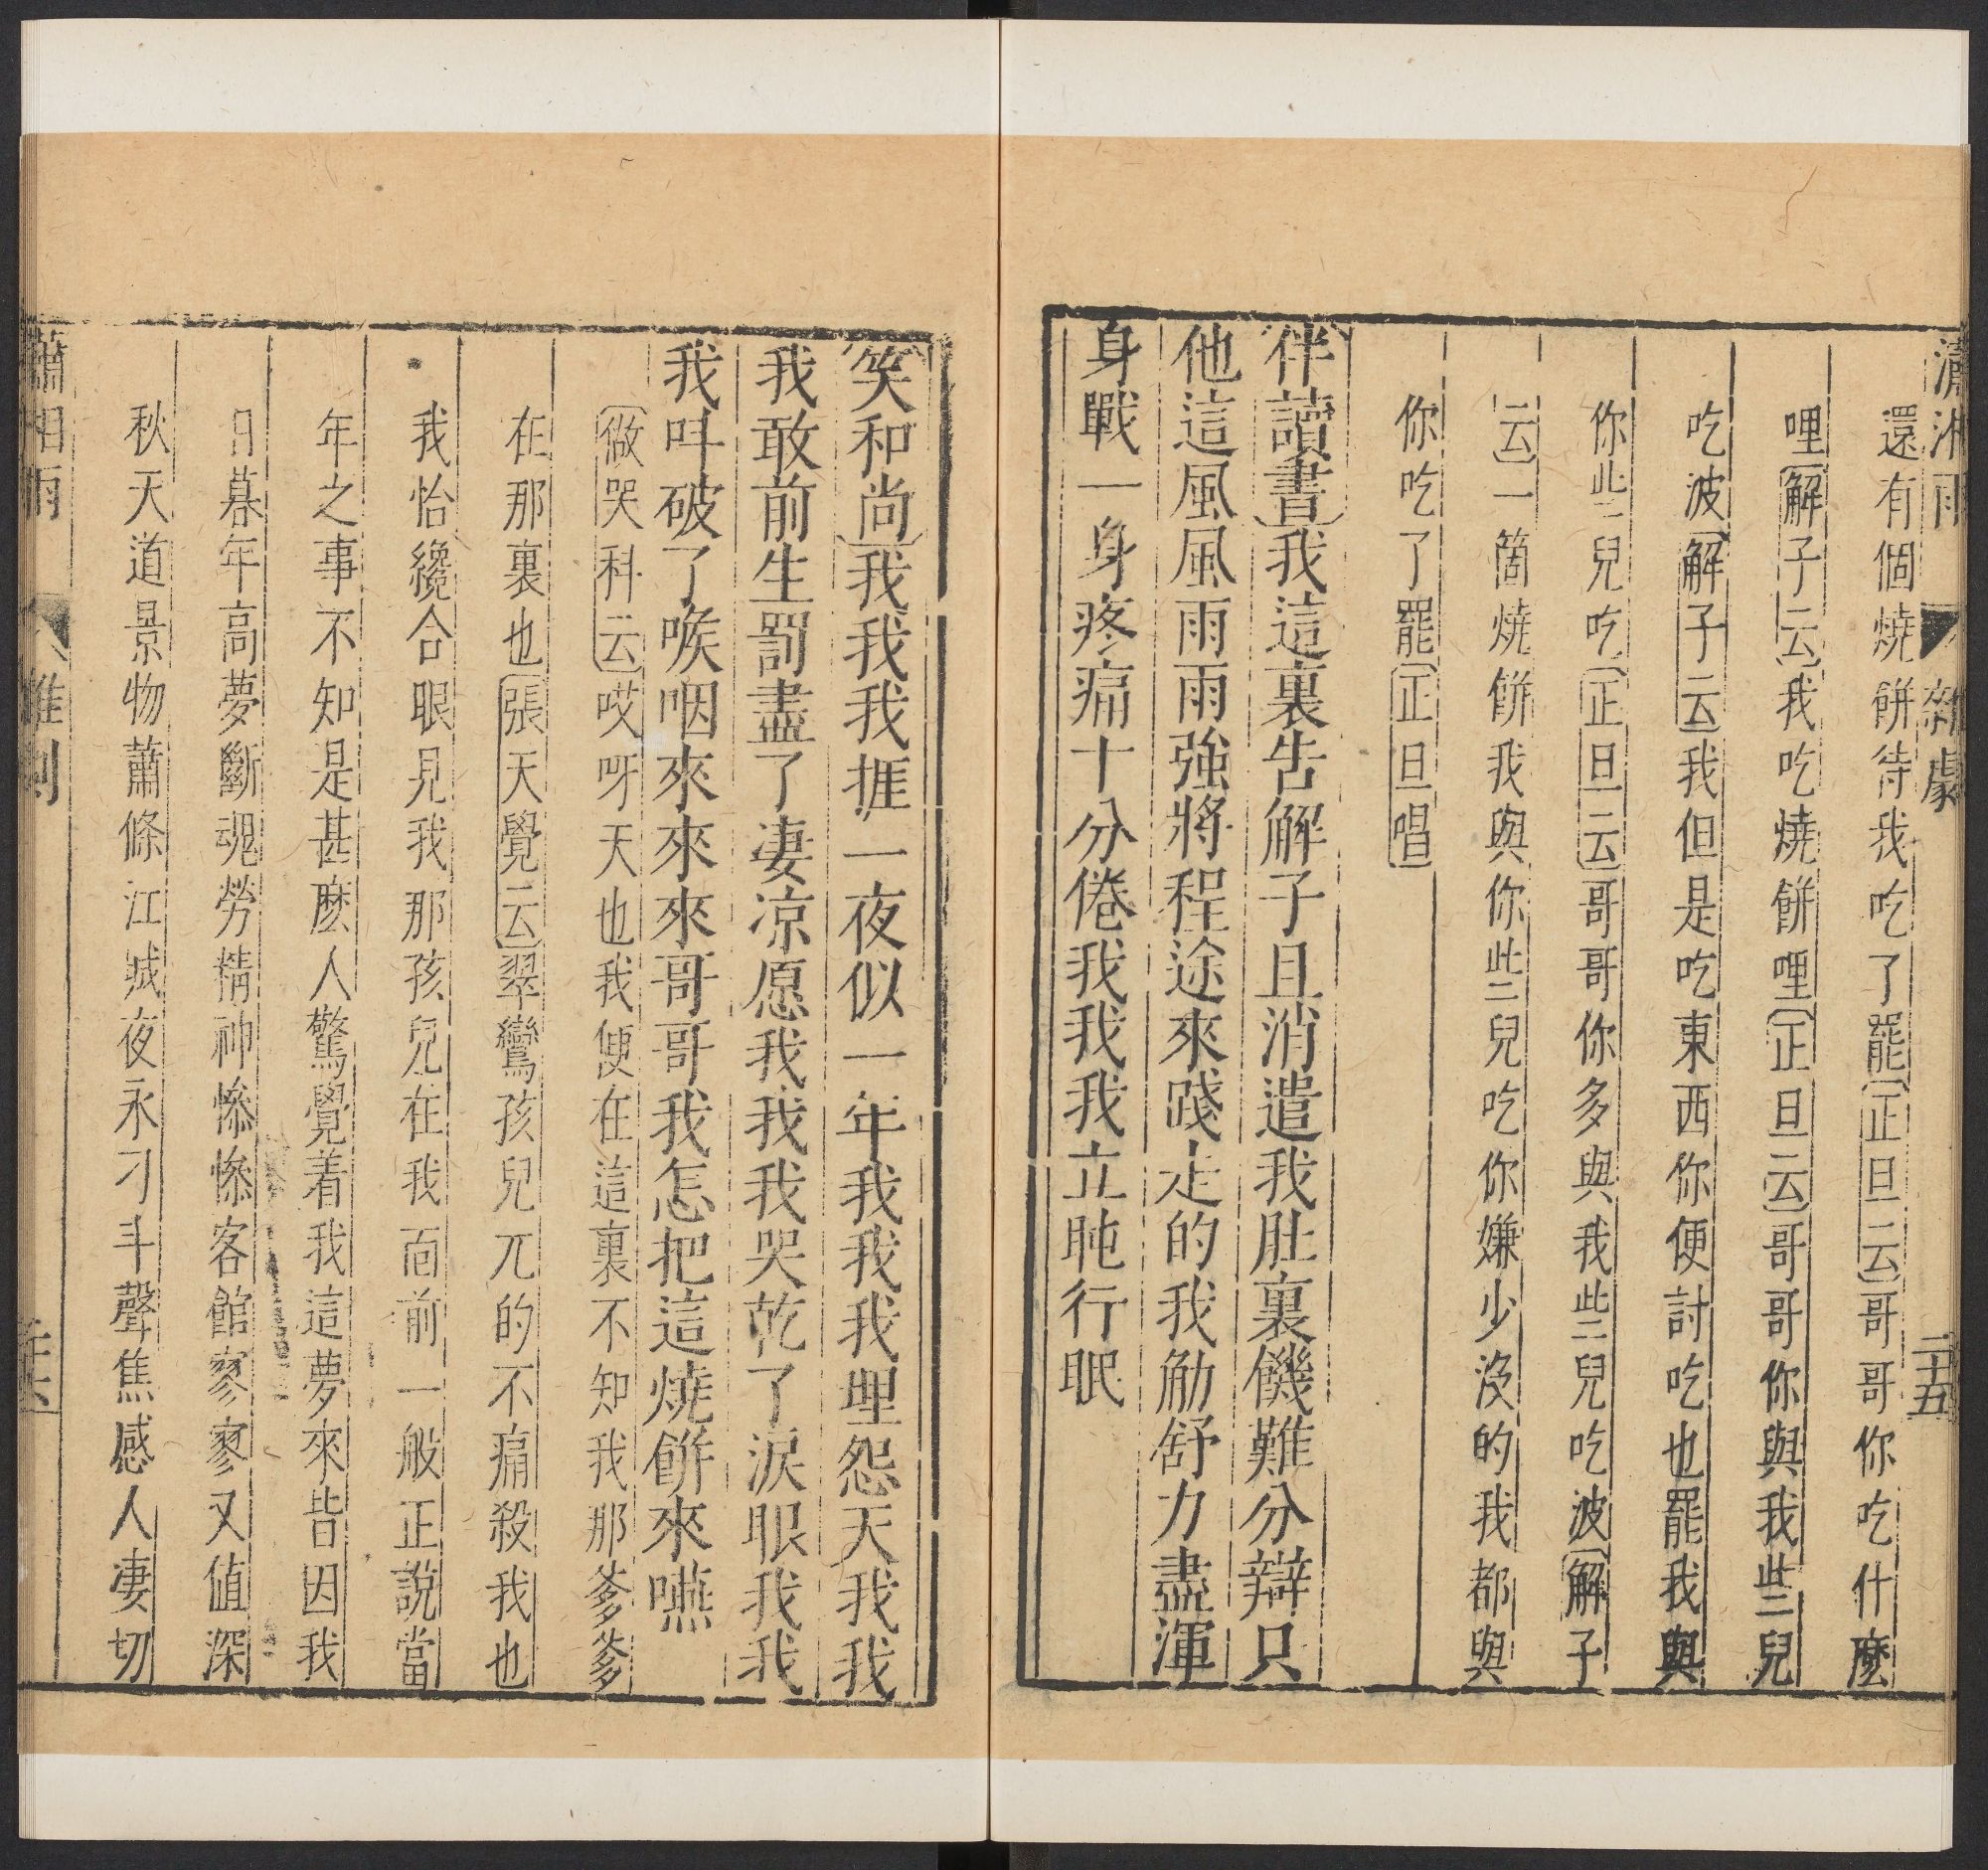 瀟湘雨 雜劇 二十五
還有個燒餅待我吃了罷正旦云哥哥你吃什麼
哩解子云我吃燒餅哩正旦云哥哥你與我些兒
吃波解子云我但是吃東西你便討吃也罷我與
你些兒吃正旦云哥哥你多與我些兒吃波解子
云一箇燒餅我與你些兒吃你嫌少沒的我都與
你吃了罷正旦唱
伴讀書我這裏告解子且消遣我肚裏饑難分辯只
他這風風雨雨強將程途來踐走的我觔舒力盡渾
身戰一身疼痛十分倦我我我立盹行眠
笑和尚我我我捱一夜似一年我我我埋怨天我我
我敢前生罰盡了凄凉愿我我我哭乾了淚眼我我
我叫破了喉咽來來來哥哥我怎把這燒餅來嚥
做哭科云哎呀天也我便在這裏不知我那爹爹
在那裏也張天覺云翠鸞孩兒兀的不痛殺我也
我恰纔合眼見我那孩兒在我面前一般正說當
年之事不知是甚麽人驚覺着我這夢來皆因我
日暮年高夢斷魂勞精神慘慘客館寥寥又值深
秋天道景物蕭條江城夜永刁斗聲焦感人凄切
瀟湘雨 雜劇